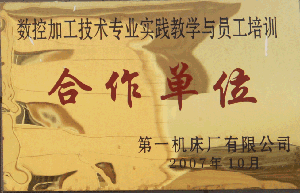 数控加工技术专业实践教学与员工培训
合作单位
第一机床厂有限公司
2007年10月